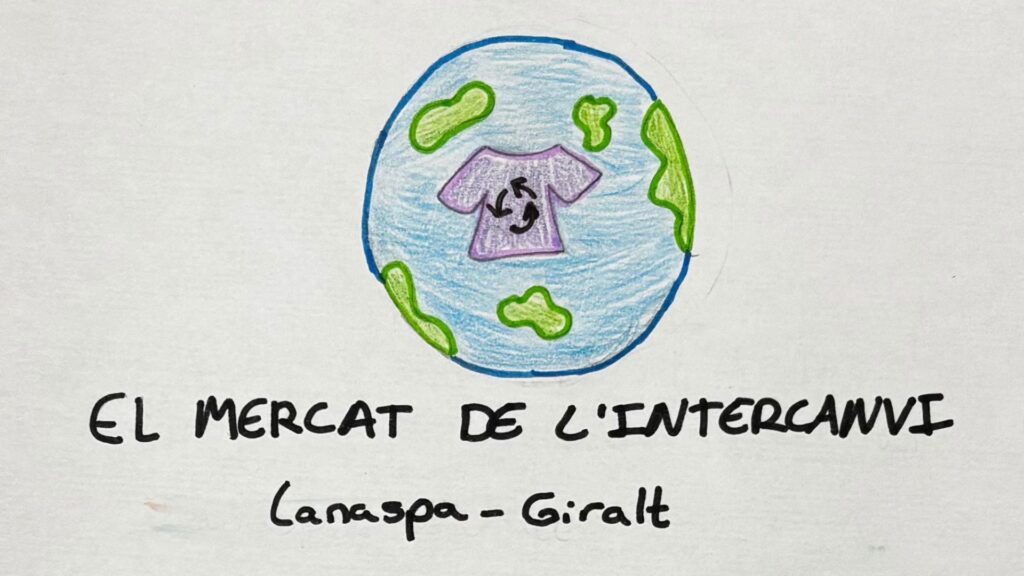 EL MERCAT DE L'INTERCANVI
Lanaspa - Giralt